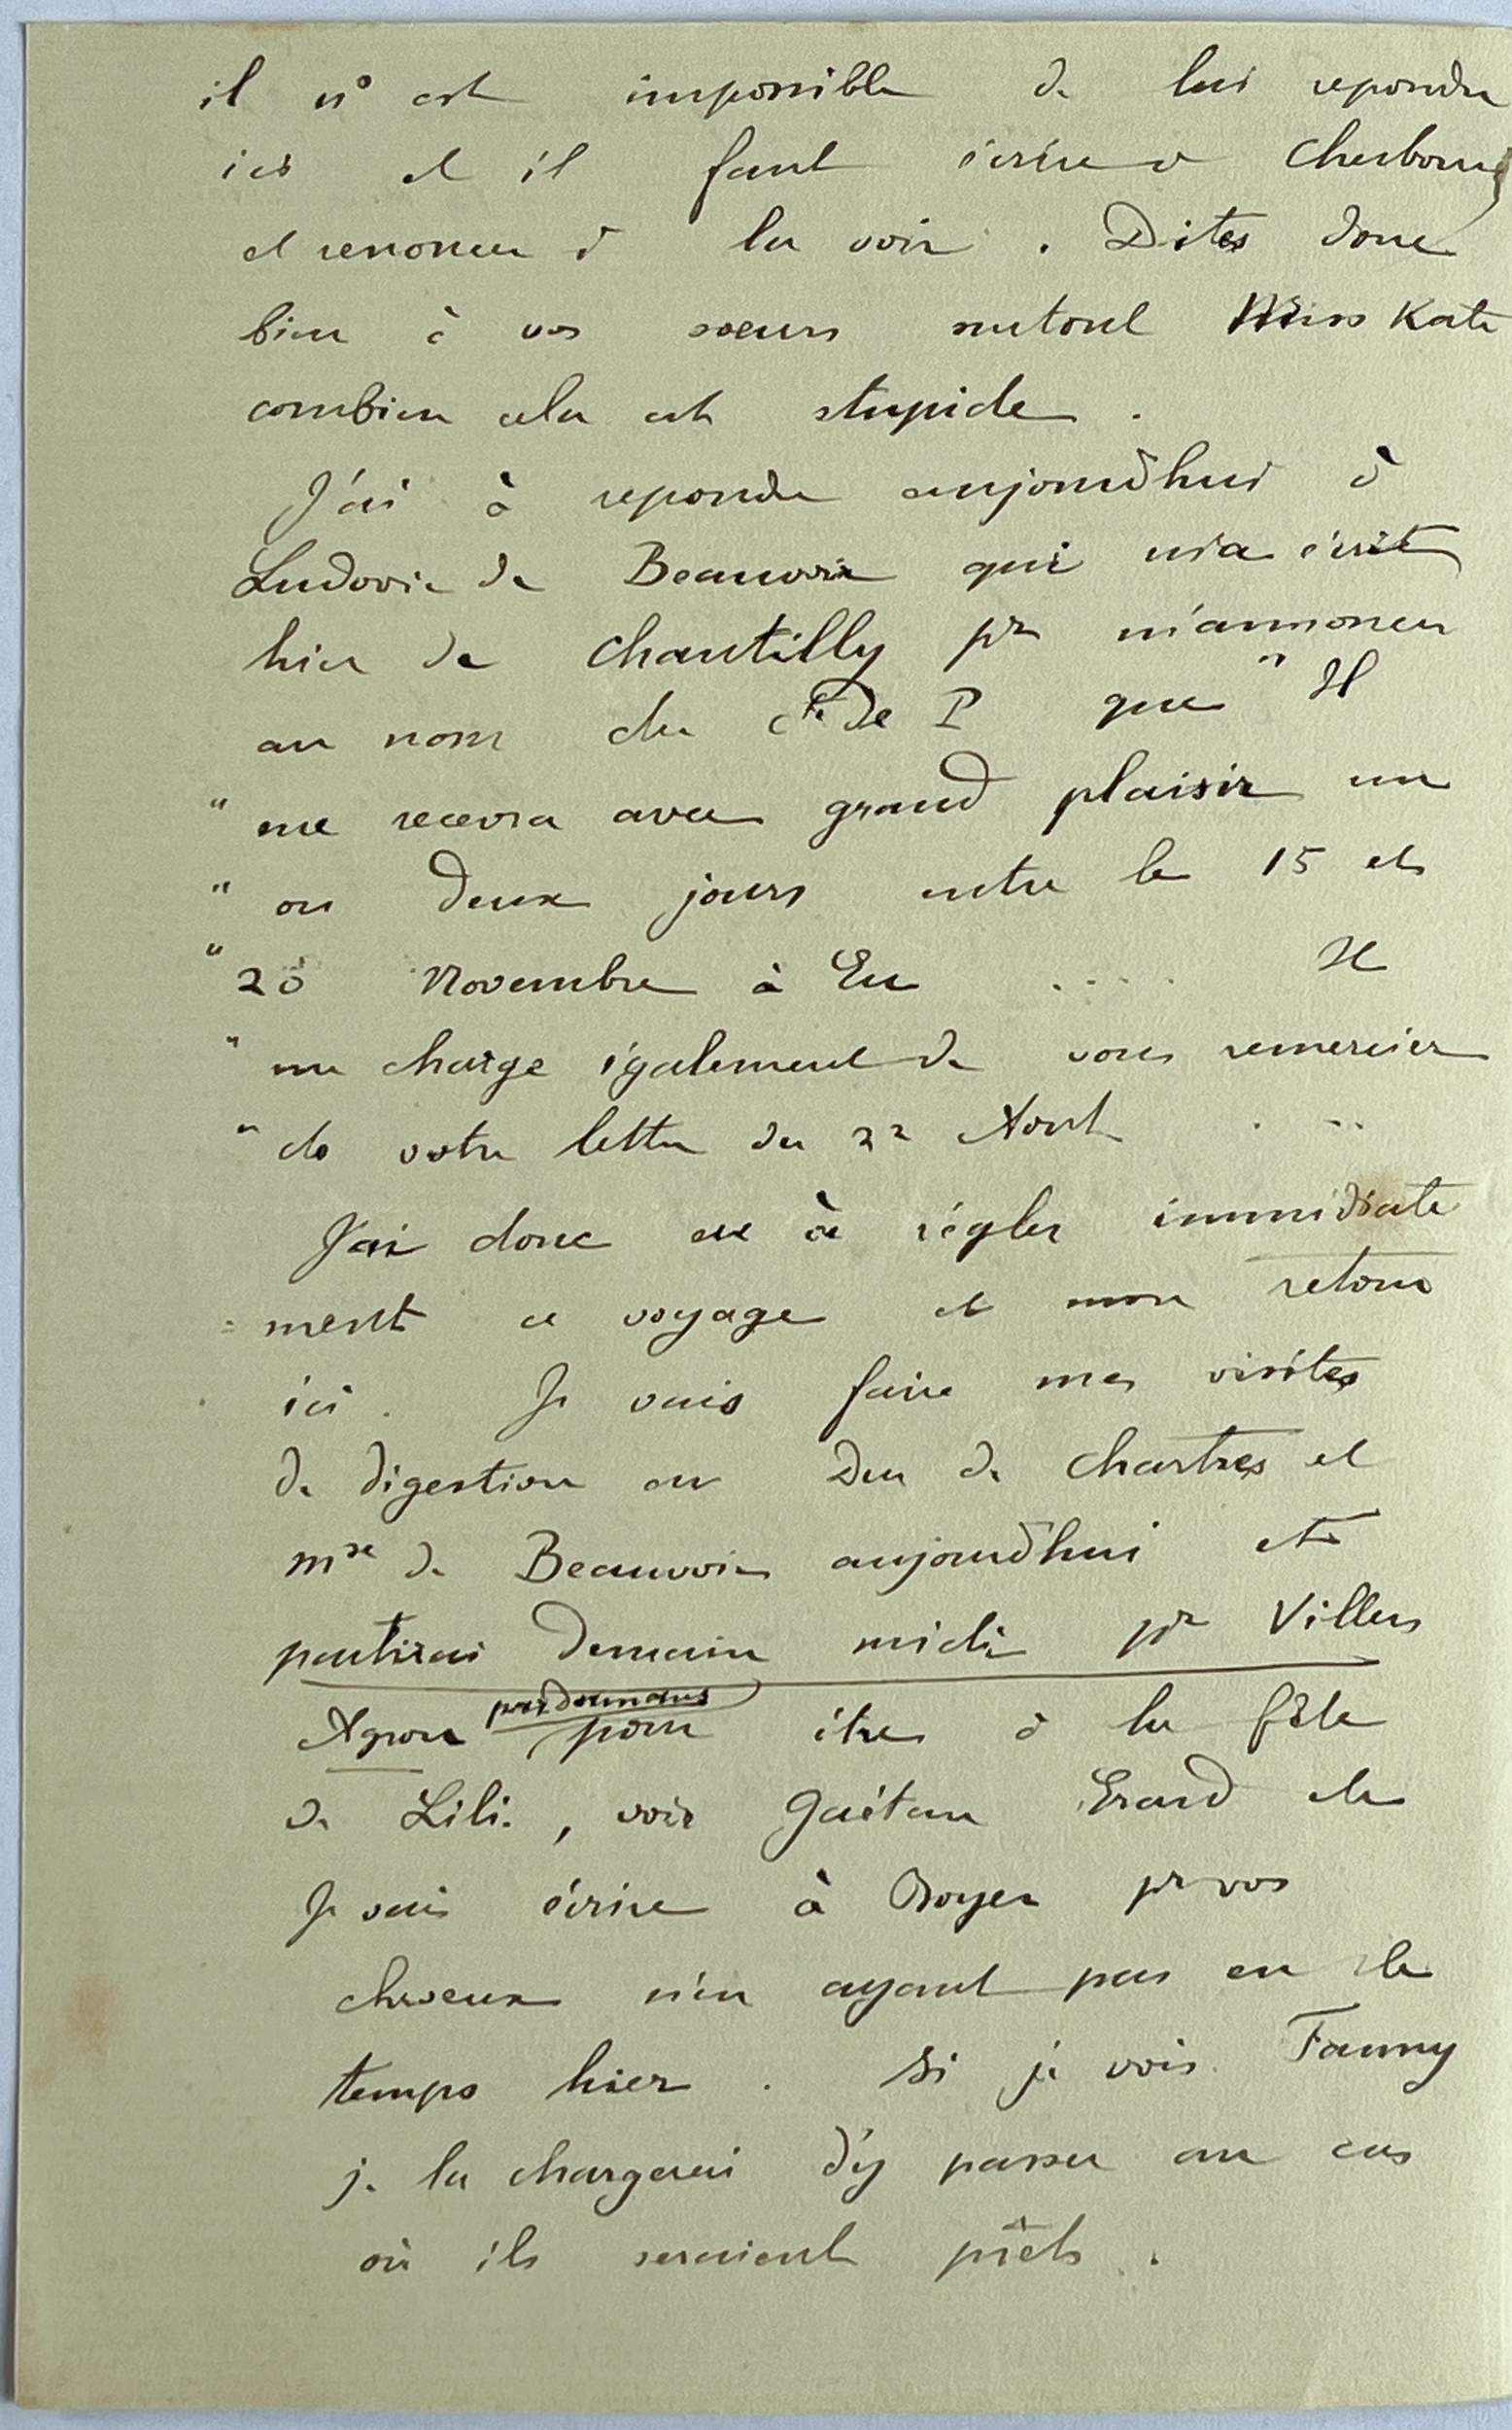 il m'est impossible de lui repondre
ici et il faut écrire à Cherbourg
et renoncer à la voir. Dites donc
bien à vos soeurs surtout Miss Kate
combien cela est stupide.
J'ai à repondre aujourd'hui à
Ludovic de Beauvoir qui m'a écrit
hier de Chantilly pr m'annoncer
au nom du Cte de P que " Il
" me recevra avec grand plaisir un
" ou deux jours entre le 15 et
" 20 Novembre à Eu .... Il
" me charge également de vous remercier
" de votre lettre du 22 Aout ...
J'ai donc eu à régler immédiate
= ment ce voyage et mon retour
ici. Je vais faire mes visites
de digestion au Duc de Chartres et
Mme de Beauvoir aujourd'hui et
partirai demain midi pr Villers
Agron pour être à la fête
de Lili., voir Gaétan Erard etc
Je vais écrire à Royer pr vos
cheveux n'en ayant pas eu le
temps hier. Si je vois Fanny
je la chargerai d'y passer au cas
où ils seraient prêts.